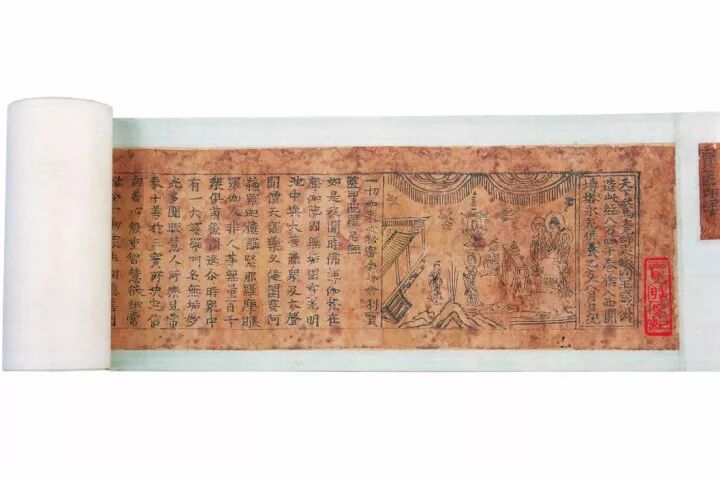 天下兵馬大元帥吳越國王錢俶
造此經八万四千卷捨入西關
塼塔永充供養乙亥八月日紀
一切如來心秘密全身舍利寶
篋印陀羅尼經
如是我聞一時佛薄伽梵在
摩伽陀國無垢園寶光明
池中與大菩薩衆及大聲
聞僧天龍藥叉健闥婆阿
蘇羅迦樓羅緊那羅摩睺
羅伽人非人等無量百千
衆俱前後圍遶尒時衆中
有一大婆羅門名無垢妙
光多聞聰慧人所樂見常
奉十善於三寶所決定信
向善心殷重智慧微細常
欲令一切衆生相應善利